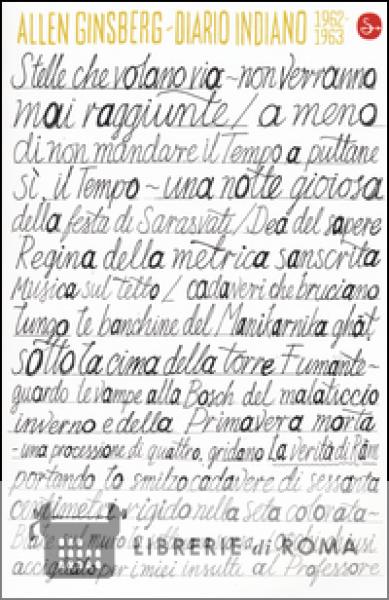 ALLEN GINSBERG - DIARIO INDIANO 1962-1963
Stelle che volano via - non verranno
mai raggiunte / a meno
di non mandare il Tempo a puttane
sì, il Tempo - una notte gioiosa
della festa di Sarasvati / Dea del sapere
Regina della metrica sanscrita
Musica sul tetto / cadaveri che bruciano
lungo le banchine del Manikarnika ghāt
sotto la cima della torre Fumante -
guardo le vampe alla Bosch del malaticcio
inverno e della Primavera morta
- una processione di quattro, gridano La verità di Rām
portando lo smilzo cadavere di sessanta
rigido nella seta colorata -
LIBRERIE di ROMA
per i miei insulti al Professore